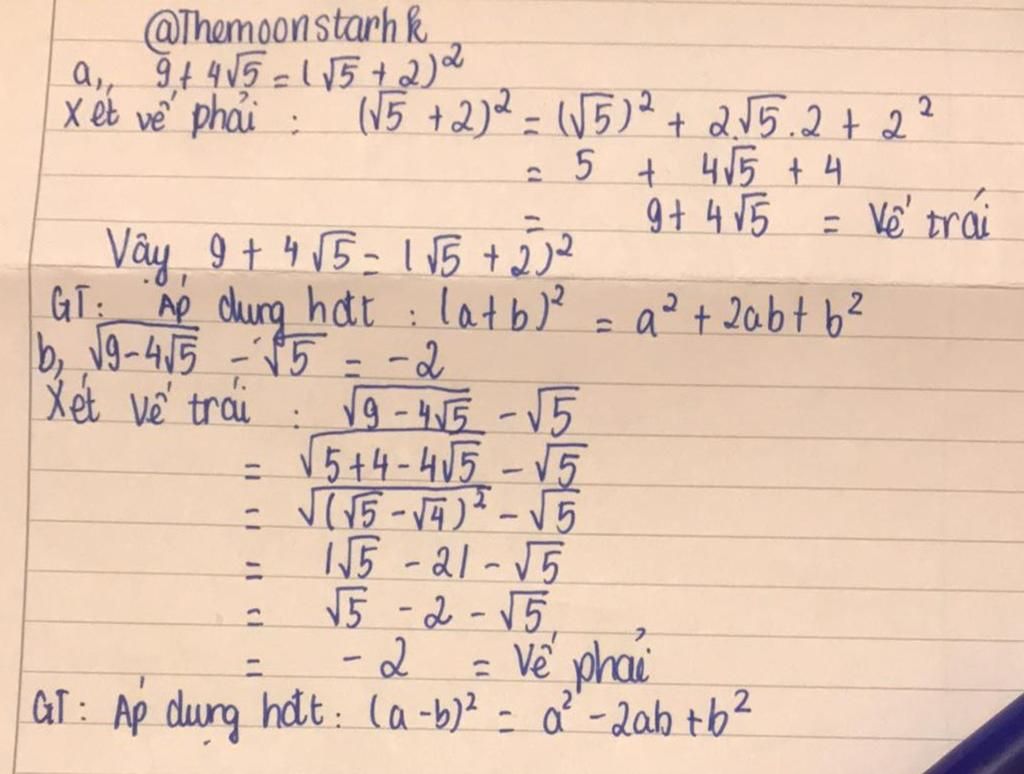 @Themoonstarhk
a,, 9 + 4√5 = (√5 + 2)²
Xét vế phải : (√5 + 2)² = (√5)² + 2.√5.2 + 2²
= 5 + 4√5 + 4
= 9 + 4√5 = Vế trái
Vậy 9 + 4√5 = (√5 + 2)²
GT: Áp dụng hđt : (a+b)² = a² + 2ab + b²
b, √(9 - 4√5) - √5 = -2
Xét vế trái : √(9 - 4√5) - √5
= √(5 + 4 - 4√5) - √5
= √((√5 - √4)²) - √5
= |√5 - 2| - √5
= √5 - 2 - √5
= - 2 = Vế phải
GT: Áp dụng hđt : (a - b)² = a² - 2ab + b²